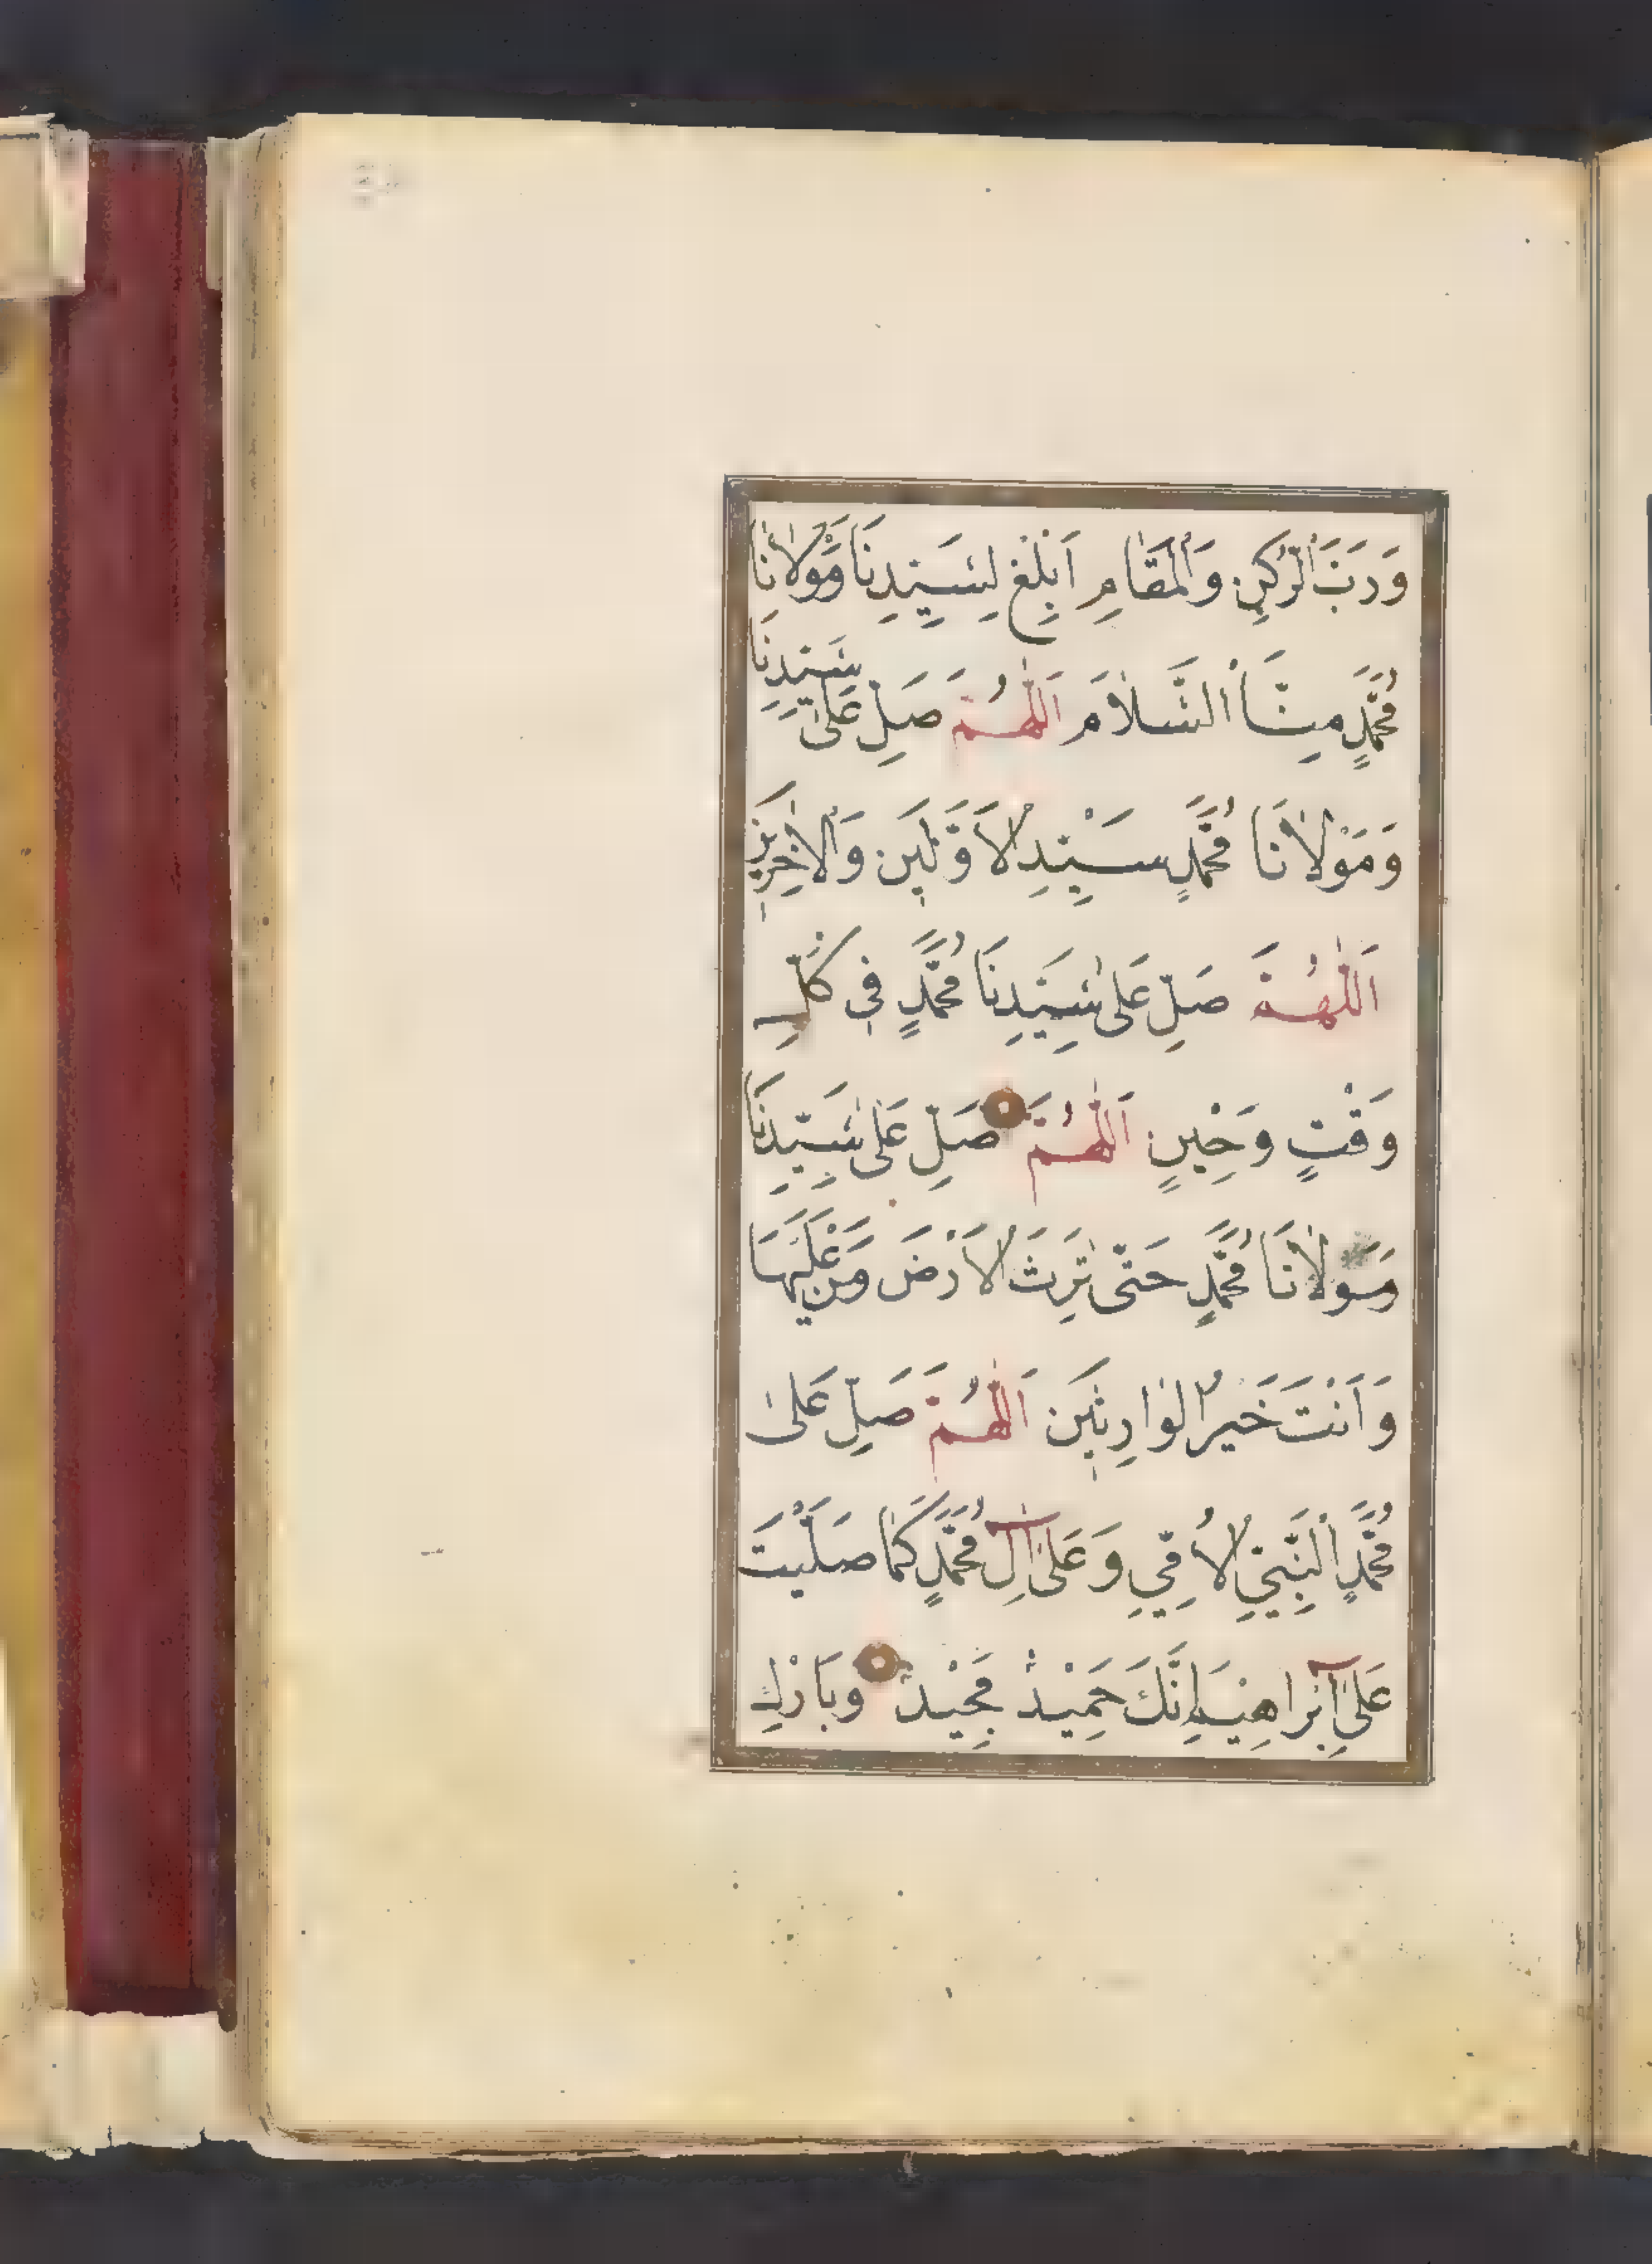 وَرَبَّ الرُّكْنِ وَالْمَقَامِ اَبْلِغْ لِسَيِّدِنَا وَمَوْلَانَا
مُحَمَّدٍ مِنَّا السَّلَامَ اَللّٰهُمَّ صَلِّ عَلٰى سَيِّدِنَا
وَمَوْلَانَا مُحَمَّدٍ سَيِّدِ الْاَوَّلِينَ وَالْاٰخِرِينَ
اَللّٰهُمَّ صَلِّ عَلٰى سَيِّدِنَا مُحَمَّدٍ فِي كُلِّ
وَقْتٍ وَحِيْنٍ اَللّٰهُمَّ صَلِّ عَلٰى سَيِّدِنَا
وَمَوْلَانَا مُحَمَّدٍ حَتّٰى تَرِثَ الْاَرْضَ وَمَنْ عَلَيْهَا
وَاَنْتَ خَيْرُ الْوَارِثِينَ اَللّٰهُمَّ صَلِّ عَلٰى
مُحَمَّدٍ النَّبِيِّ الْاُمِّيِّ وَعَلٰى اٰلِ مُحَمَّدٍ كَمَا صَلَّيْتَ
عَلٰى اِبْرَاهِيْمَ اِنَّكَ حَمِيْدٌ مَجِيْدٌ وَبَارِكْ